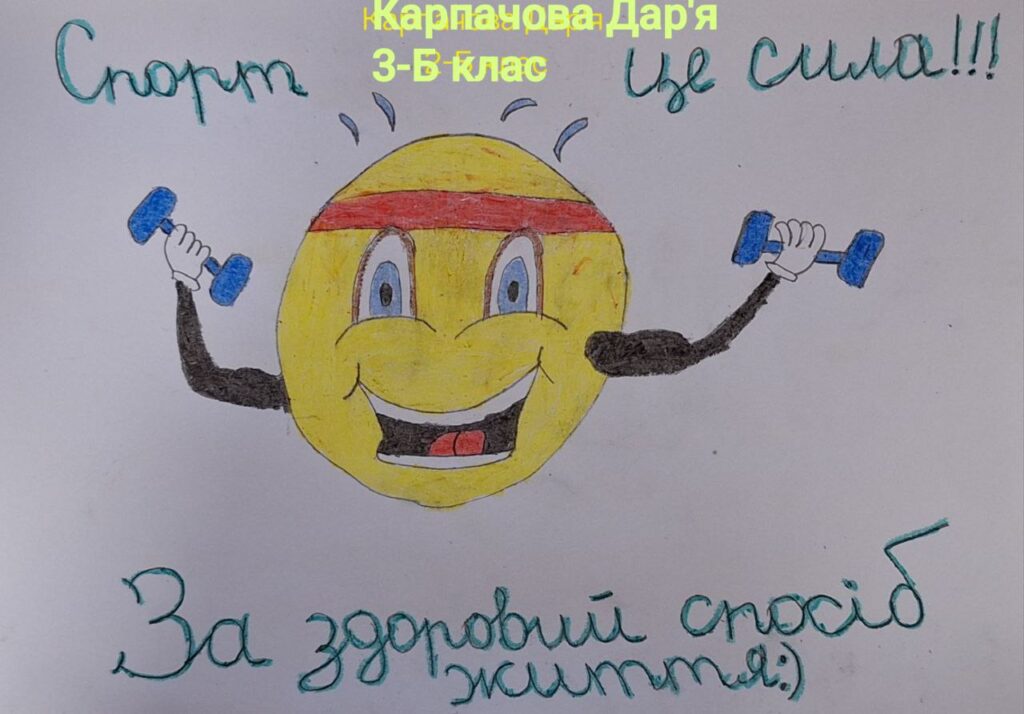 Карпачова Дар'я
3-Б клас
Спорт це сила!!!
За здоровий спосіб
життя:)